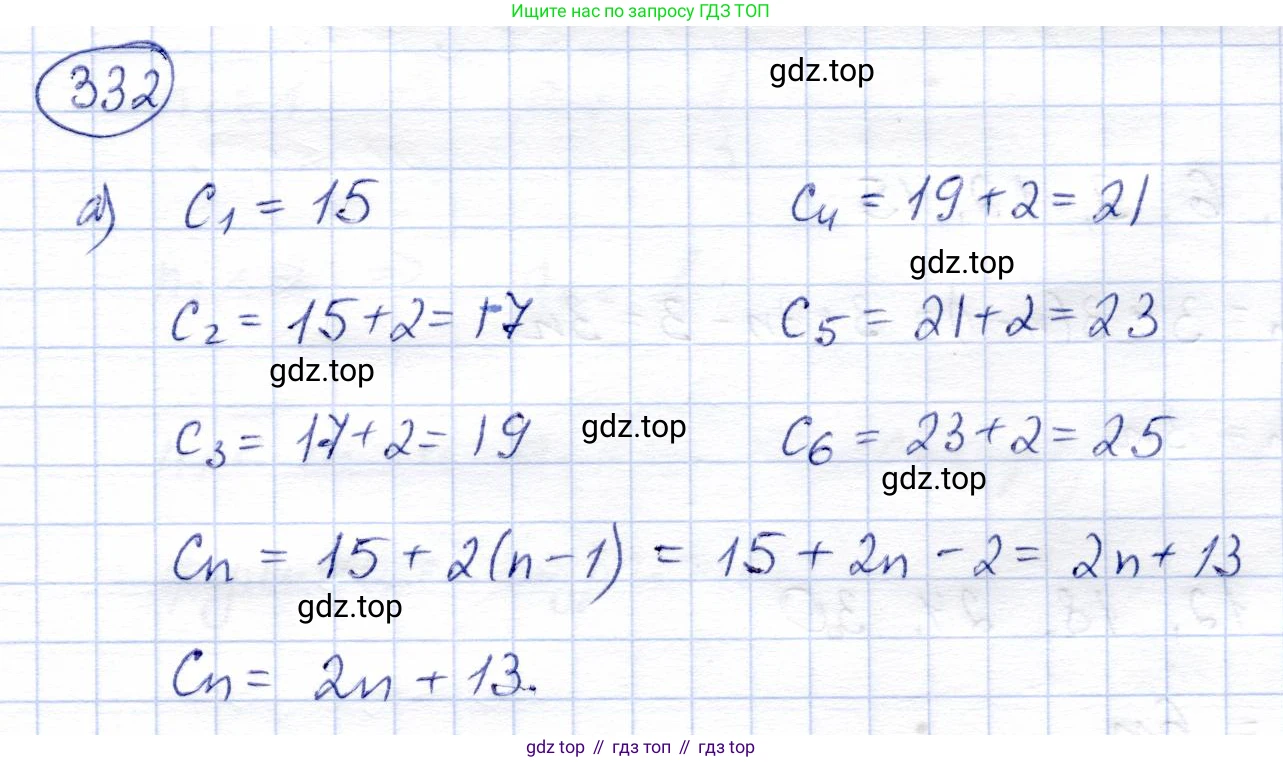 Ищите нас по запросу ГДЗ ТОП
332
gdz.top
а) C₁ = 15
C₄ = 19 + 2 = 21
gdz.top
C₂ = 15 + 2 = 17
C₅ = 21 + 2 = 23
gdz.top
C₃ = 17 + 2 = 19
gdz.top
C₆ = 23 + 2 = 25
gdz.top
Cn = 15 + 2(n - 1) = 15 + 2n - 2 = 2n + 13
gdz.top
Cn = 2n + 13.
gdz top // гдз топ // гдз top